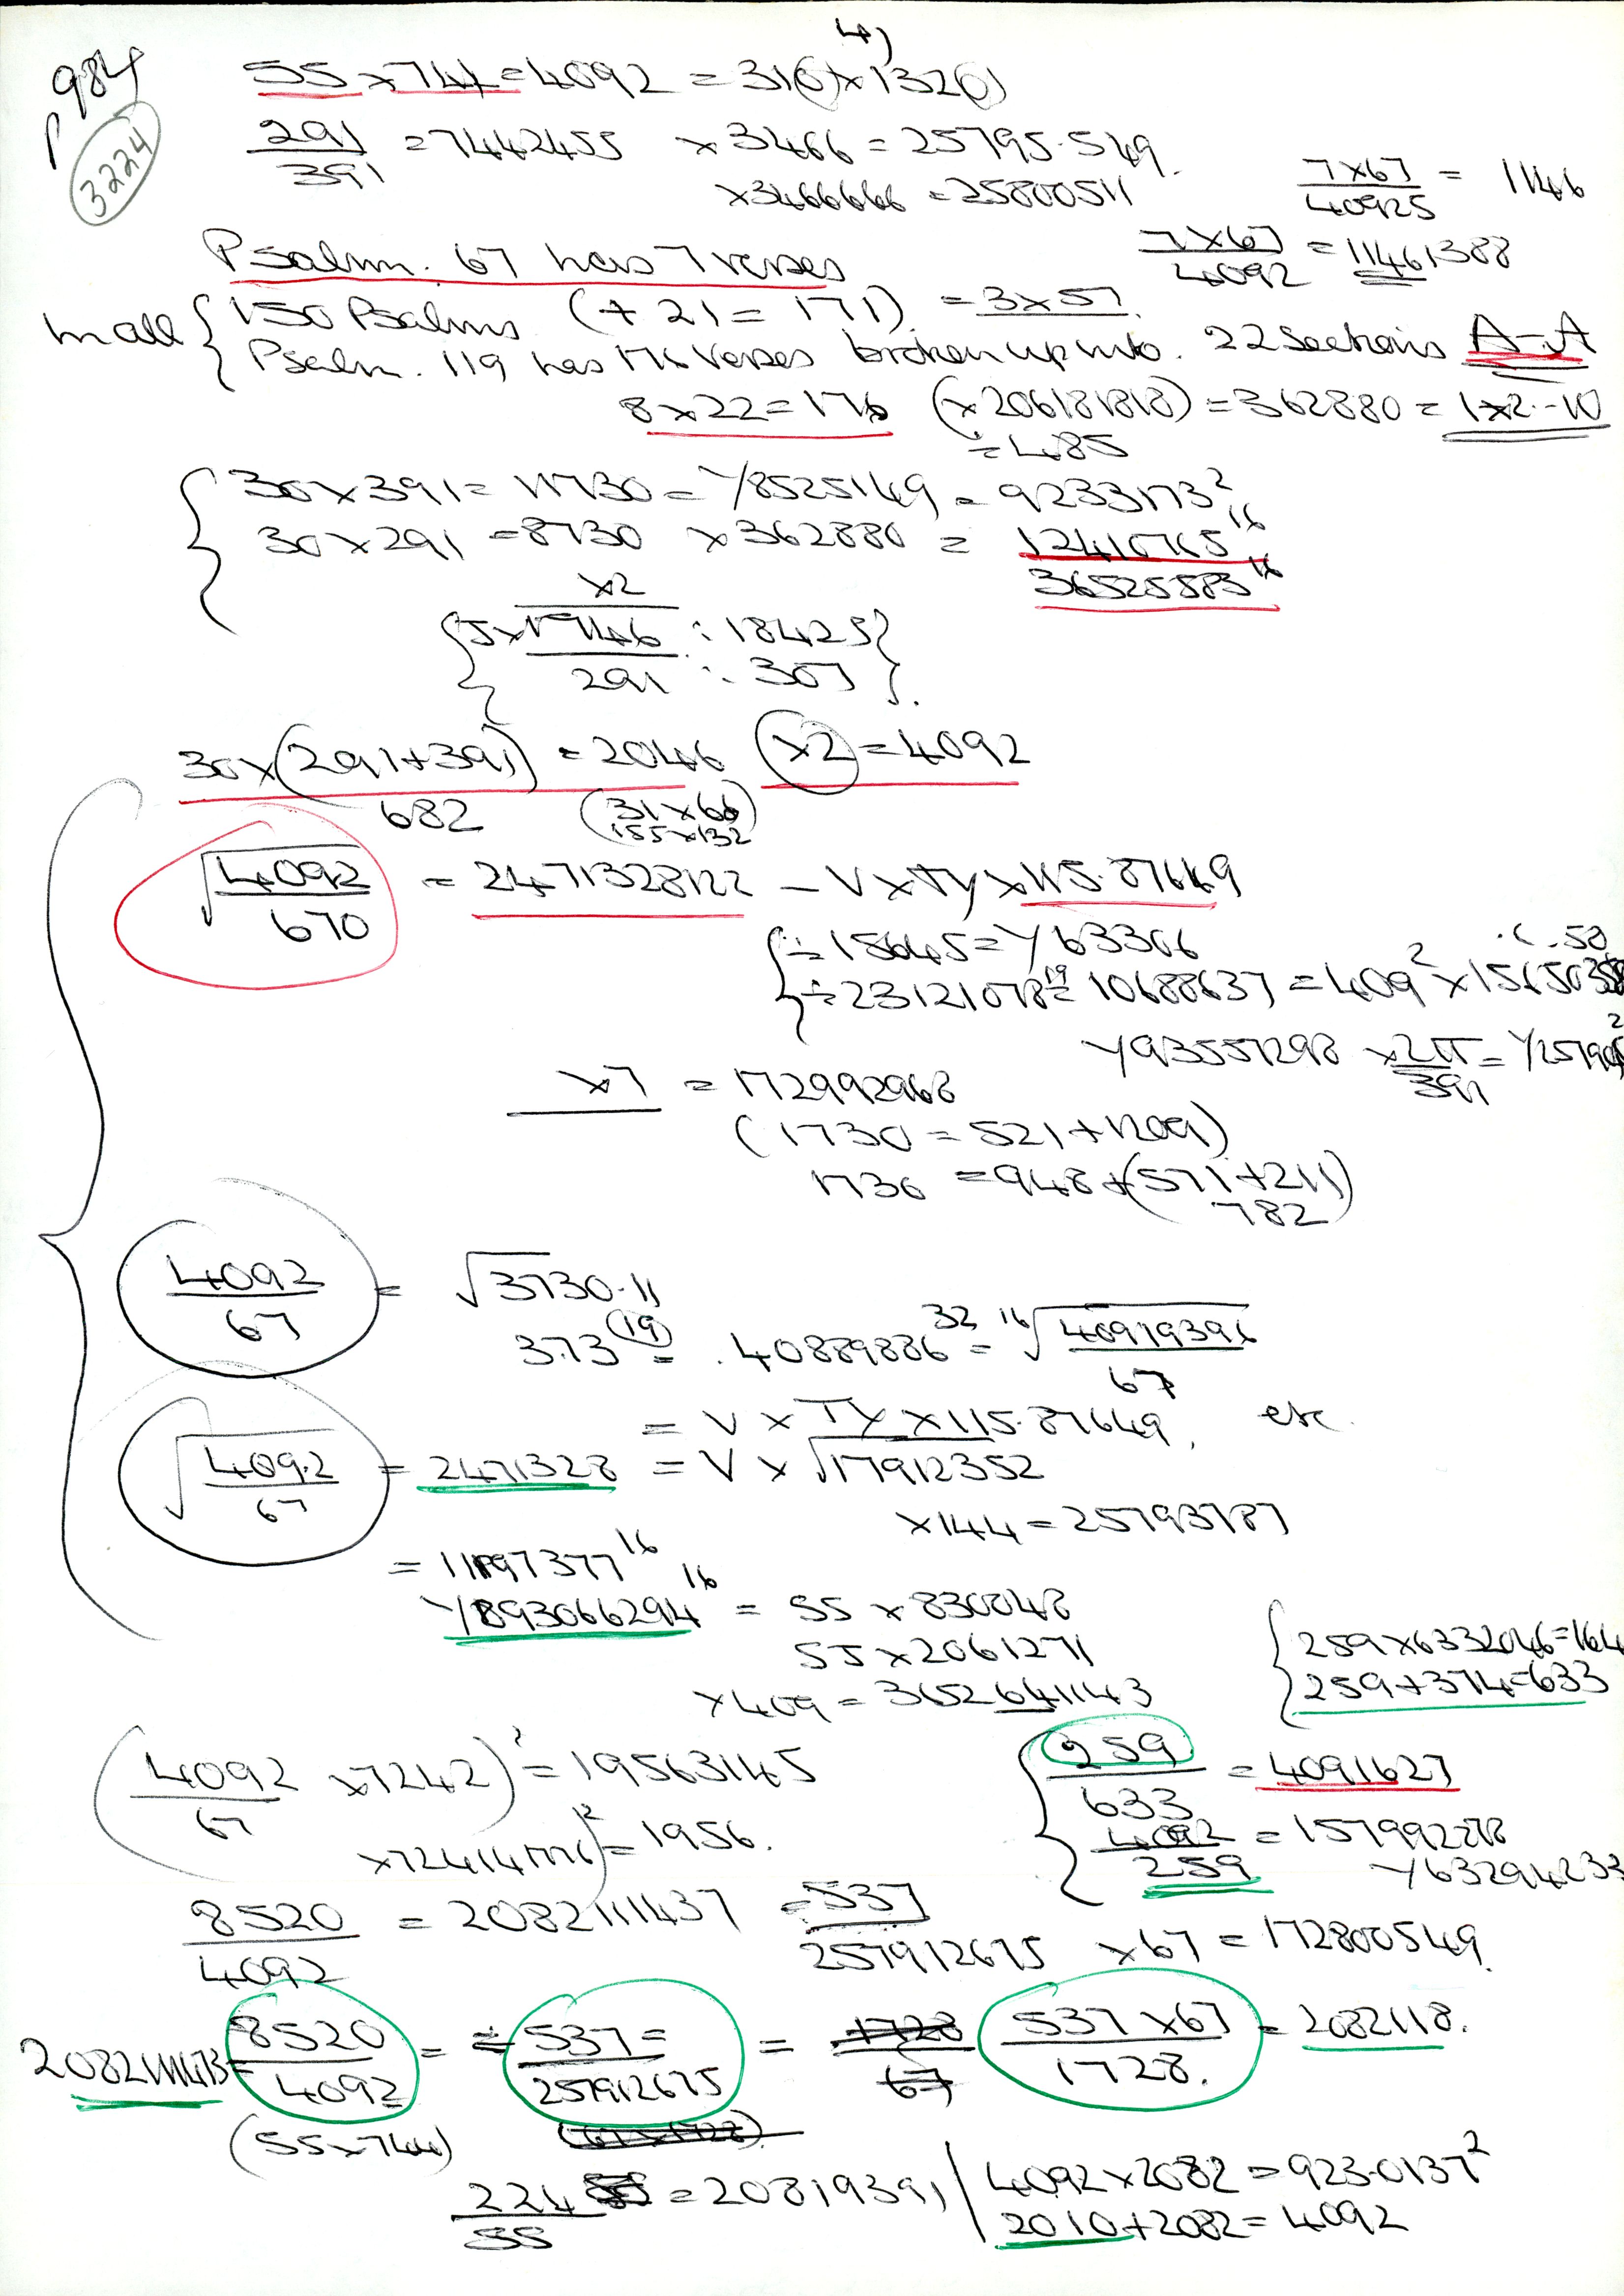 4)
P984
3224
55 × 744 = 4092 = 31(0) × 132(0)
291/391 = 7442455 × 3466 = 25795.549
× 3466666 = 25800511
7×67/40925 = 1146
7×67/4092 = 11461388
Psalm. 67 has 7 verses
In all { 150 Psalms (+ 21 = 171) = 3×57
Psalm. 119 has 176 verses broken up into. 22 Sections A-A
8×22=176 (×206181818) = 362880 = 1×2--10
÷485
30×391 = 11730 = Y8525149 = 9233173²
30×291 = 8730 ×362880 = 12410765¹⁶
36525583¹⁶
×2
291 : 307
30×(291+391) = 2046 (×2) = 4092
682 (31×66)
155×132
√4092/670 = 2471328122 – V×Ty×115.87649
÷15645=Y63306
÷23121078¹⁹= 10688637 = 409²
Y93557298 ×2π/391
×7 = 172992968
(1730 = 521+1209)
1730 = 948+(571+211)
782
4092/67 = √3730.11
373(19) = .40889886³² = ¹⁶√40919396/67
= V × Ty ×115.87649. etc.
√4092/67 = 2471328 = V × √17912352
×144 = 25793787
= 11897377¹⁶
Y893066294¹⁶ = 55 × 830848
55×2061271
×409 = 3652641143
259×6332046=164
259+374=633
(4092/67 ×7242)² = 195631145
×72414776)² = 1956.
259/633 = 4091627
4092/259 = 157992278
Y63294233
8520/4092 = 2082111437 = 537/257912675 ×67 = 172800549.
2082111473 = 8520/4092 = 537/257912675 = 1728/67 537×67/1728. = 2082118.
(55×744) (67×1728)
224/55 = 20819391 | 4092×2082 = 923.0137²
2010+2082=4092